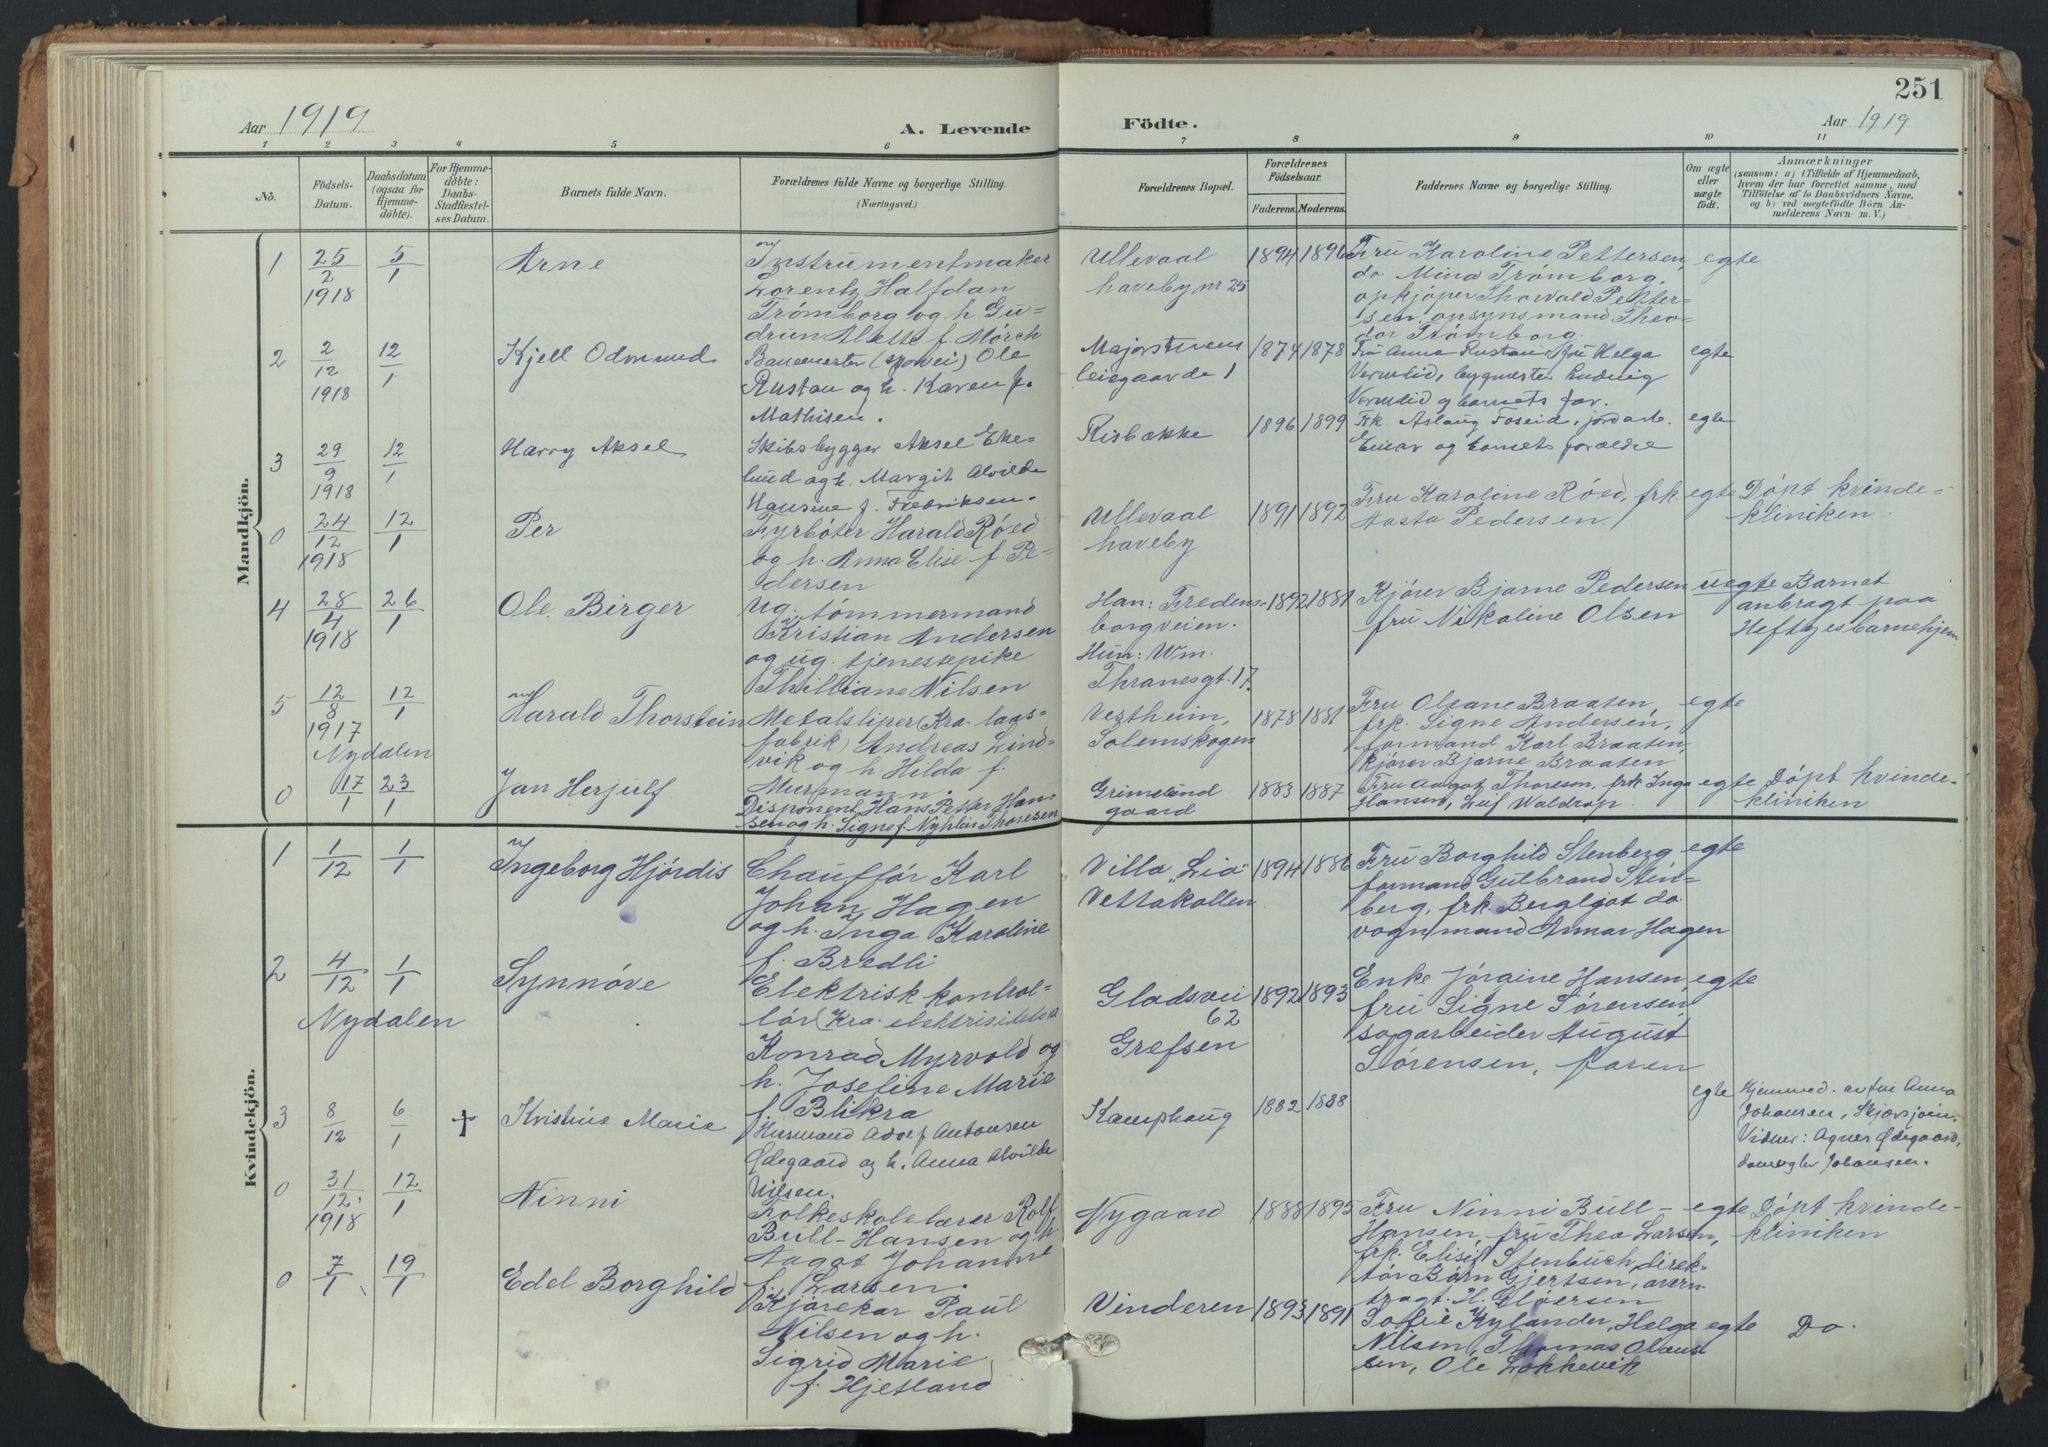 251
Aar 1919
A. Levende
Födte.
Aar 1919
1 2 3 4 5 6 7 8 9 10 11
No.
Födsels-
Datum.
Daabsdatum
(ogsaa for
Hjemme-
döbte).
For Hjemme-
döbte:
Daabs-
Stadfæstel-
ses Datum.
Barnets fulde Navn.
Forældrenes fulde Navne og borgerlige Stilling.
(Næringsvei.)
Forældrenes Bopæl.
Forældrenes
Födselsaar.
Faderens. Moderens.
Faddernes Navne og borgerlige Stilling.
Om ægte
eller
uægte
födt.
Anmærkninger
(saasom: a) i Tilfælde af Hjemmedaab,
hvem der har forrettet samme, med
Tilföielse af to Daabsvidners Navne,
og b) ved uægtefödte Börn An-
melderens Navn m. V.)
Mandkjön.
1 25/2 1918 5/1 Arne
Instrumentmaker
Lorentz Halfdan
Trómborg og h. Gu-
drun Alette f. Mórch
Ullevaal
haveby nr. 25
1894 1896
Fru Karoline Pettersen,
do. Mina Trómborg,
opkjóper Thorvald Petter-
sen, opsynsmand Theo-
dor Trómborg.
egte
2 2/12 1918 12/1 Kjell Odmund
Banemester (sporvei) Ole
Rustan og h. Karen f.
Mathisen.
Majorstuens
leiegaarde 1
1874 1878
Fru Anna Rustan, fru Helga
Vermlid, bygmester Ludvig
Vermlid og barnets far.
egte
3 29/9 1918 12/1 Harry Aksel
Skibsbygger Aksel Eke-
lund og h. Margit Alvilde
Hansine f. Fredriksen.
Risbække
1896 1899
Frk. Aslaug Foseid, jordarb.
Einar og barnets forældre
egte
0 24/12 1918 12/1 Per
Fyrbóter Harald Róed
og h. Anna Elise f. Pe-
dersen
Ullevaal
haveby
1891 1892
Fru Karoline Róed, frk.
Aasta Pedersen.
egte
Dópt kvinde-
kliniken.
4 28/4 1918 26/1 Ole Birger
Ug. tómmermand
Kristian Andersen
og ug. tjenestepike
Thilliane Nilsen
Han: Fredens-
borgveien.
Hun: Wm.
Thranesgt. 17.
1892 1881
Kjórer Bjarne Pedersen
fru Nikoline Olsen
uegte
Barnet
anbragt paa
Heftyes barnehjem
5 12/8 1917 12/1 Harald Thorstein
Nydalen
Metalsliper (Kra. laas-
fabrik) Andreas Lind-
vik og h. Hilda f.
Murmann.
Vestheim,
Solemskogen
1878 1881
Fru Oleane Braaten,
frk. Signe Andersen,
formand Karl Braaten,
kjórer Bjarne Braaten
egte
0 17/1 23/1 Jan Herjulf
Disponent Hans Petter Han-
sen og h. Signe f. Nyhlen Thoresen
Grimelund
gaard
1883 1887
Fru Aagot Thoresen, frk. Inga
Hansen, Leif Waldrop.
egte
Dópt kvinde-
kliniken
Kvindekjön.
1 1/12 1/1 Ingeborg Hjórdis
Chauffór Karl
Johan Hagen
og h. Inga Karoline
f. Bredli
Villa "Lia"
Vettakollen
1894 1886
Fru Borghild Stenberg
formand Gulbrand Sten-
berg, frk. Bergljot do.
vognmand Annar Hagen
egte
2 4/12 1/1 Synnóve
Nydalen
Elektrisk kontrol-
lór (Kra. elektrisitets
Konrad Myrvold og
h. Josefine Marie
f. Blikra
Gladsvei
62
Grefsen
1892 1893
Enke Jórgine Hansen,
fru Signe Sórensen,
sagarbeider August
Sórensen, faren
egte
3 8/12 6/1 † Kristine Marie
Husmand Adolf Antonsen
Ødegaard og h. Anna Alvilde
Nilsen.
Kamphaug
1882 1888
egte
Hjemmed. av fru Anna
Johansen, Skjærsjøen.
Vidner: Agnes Ødegaard,
Johansen.
0 31/12 1918 12/1 Ninni
Folkeskolelærer Rolf
Bull-Hansen og h.
Aagot Johanne
f. Larsen.
Nygaard
1888 1895
Fru Ninni Bull-
Hansen, fru Thea Larsen,
frk. Elisif Stenbuch, direk-
tór Bórn Gjertsen,
H. Glóersen
egte
Dópt kvinde-
kliniken
0 7/1 19/1 Edel Borghild
Kjórekar Paul
Nilsen og h.
Sigrid Marie
f. Hjetland
Vinderen
1893 1891
Sofie Kylander, Helga
Nilsen, Thomas
sen, Ole Lokkevik
egte
Do.